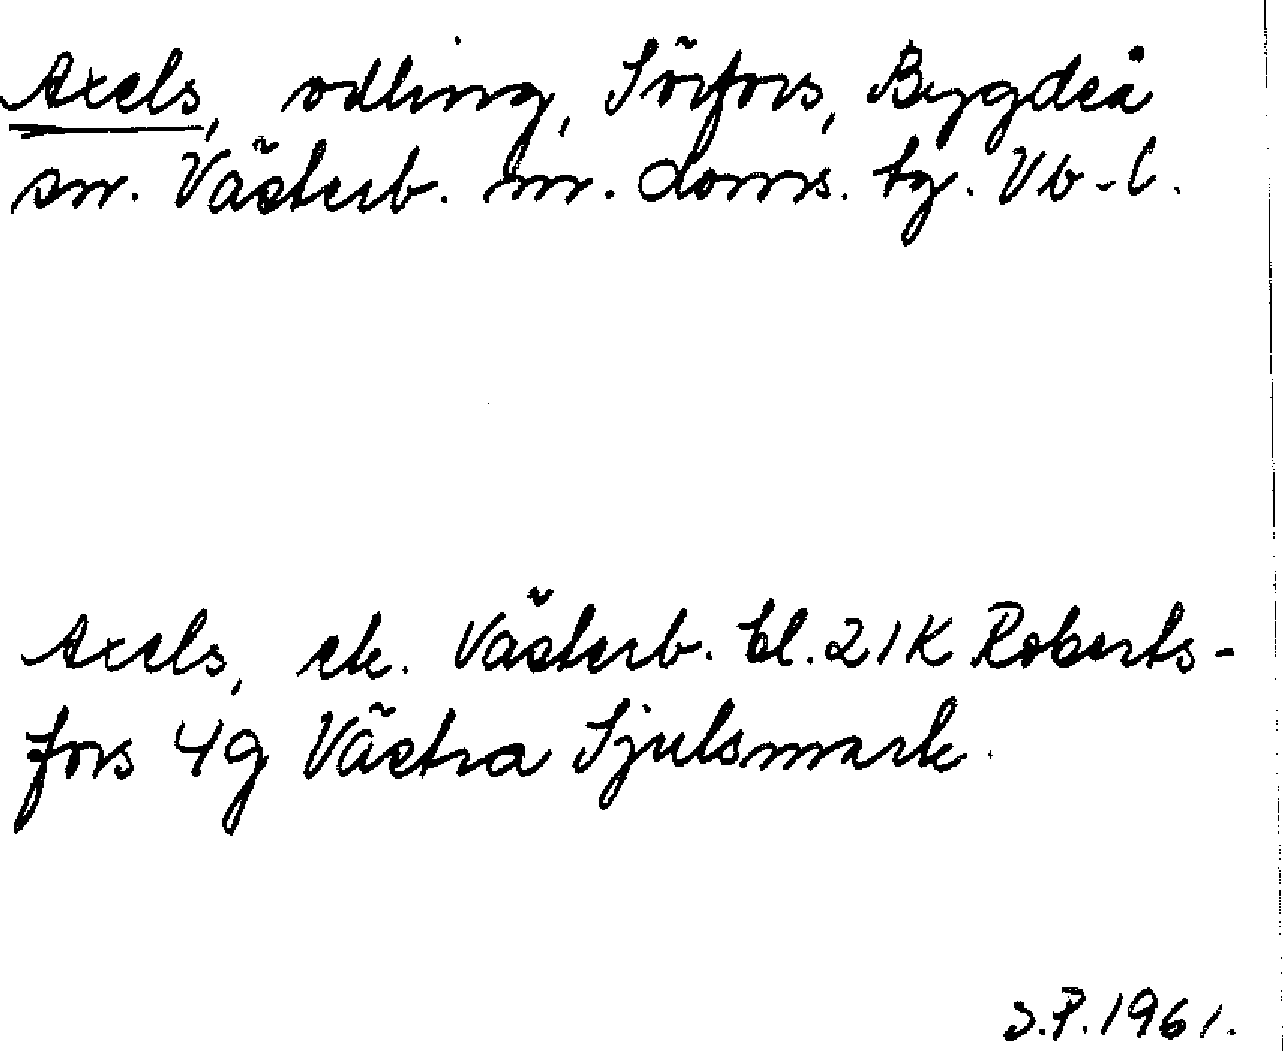 Axels, odling, Sörfors, Bygdeå
sn. Västerb. m. doms. tg. Vb-l.
Axels, ek. Västerb. bl. 21K Roberts-
fors 4g Västra Sjulsmark.
S.P. 1961.